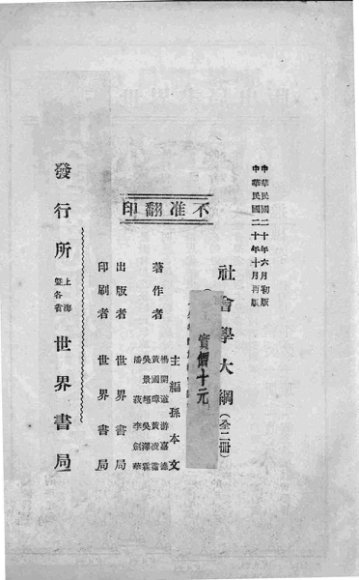 中華民國二十年六月初版
中華民國二十年十月再版
社會學大綱(全二冊)
實價十元
不准翻印
主編孫本文
著作者
楊開道 游嘉德
黃國璋 黃凌霜
吳景超 吳澤霖
潘菽 李劍華
出版者 世界書局
印刷者 世界書局
發行所 上海暨各省 世界書局